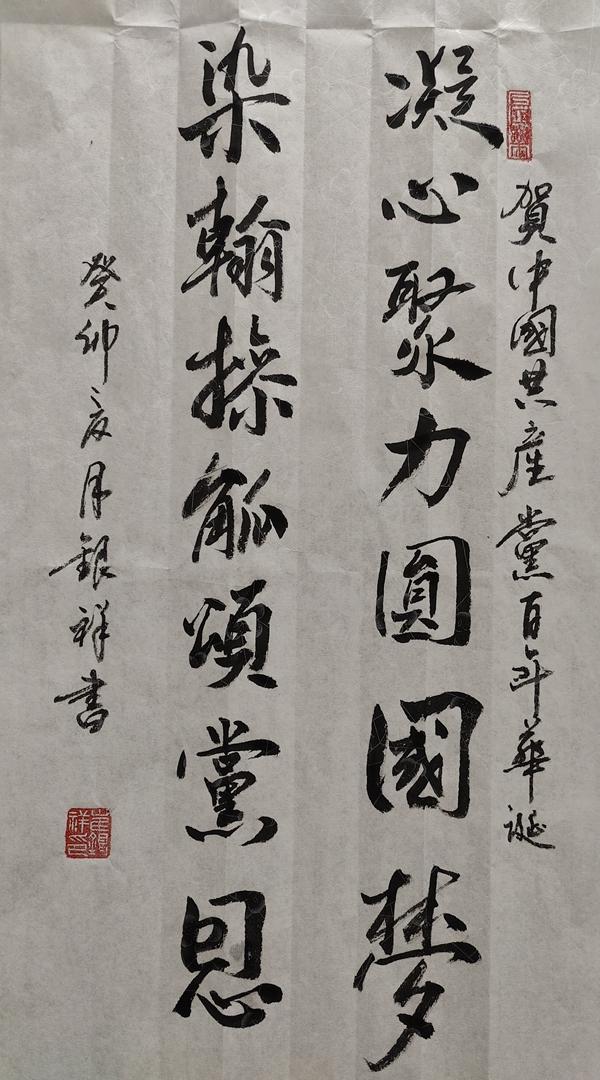 賀中國共産黨百年華誕
凝心聚力圓國夢
染翰操觚頌黨恩
癸卯亥月銀祥書